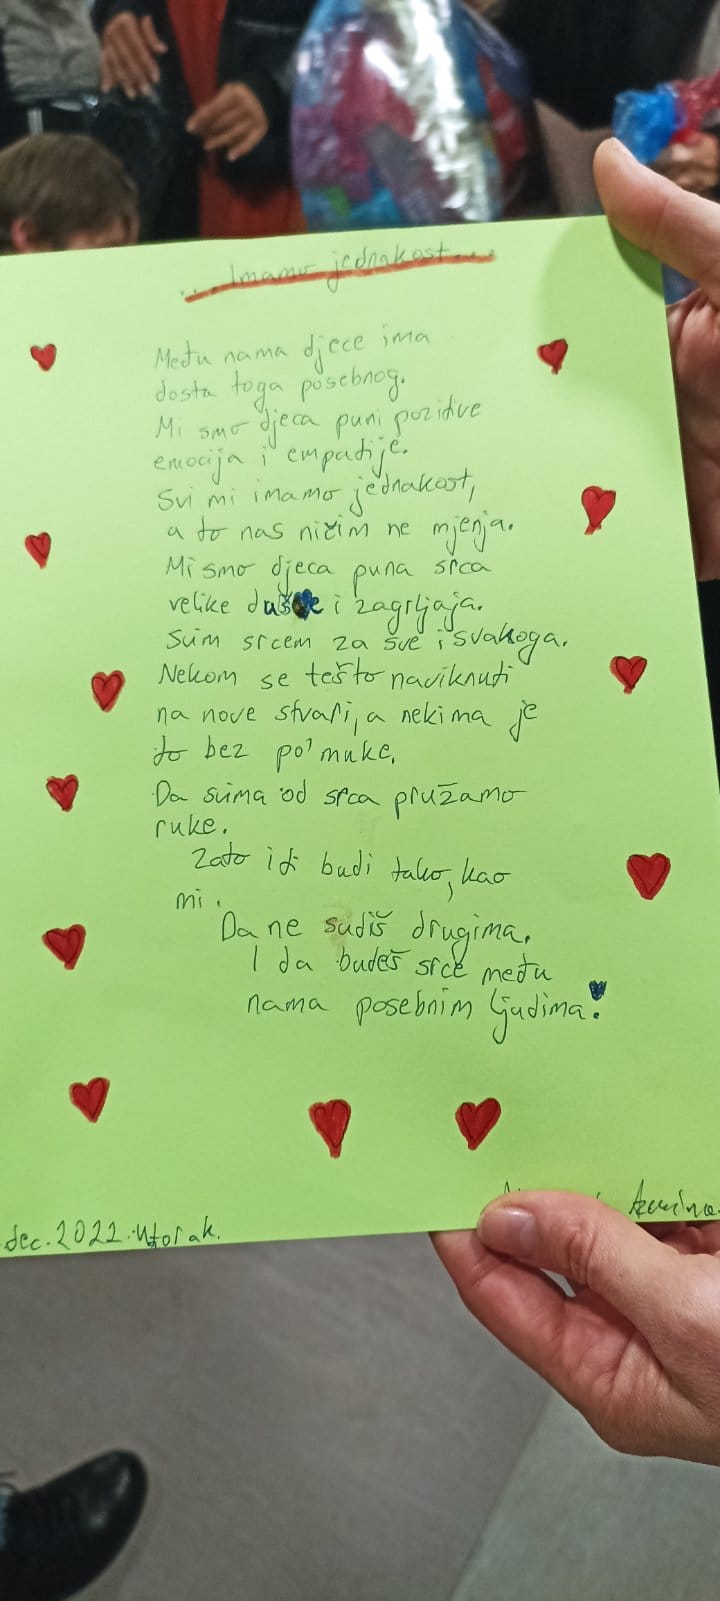 ... Imamo jednakost...
Među nama djece ima
dosta toga posebnog.
Mi smo djeca puni pozitive
emocija i empatije.
Svi mi imamo jednakost,
a to nas ničim ne mjenja.
Mi smo djeca puna srca
velike duše i zagrljaja.
Svim srcem za sve i svakoga.
Nekom se tešto naviknuti
na nove stvari, a nekima je
to bez po' muke.
Da svima od srca pružamo
ruke.
Zato i ti budi tako, kao
mi.
Da ne sudiš drugima.
I da budeš srce među
nama posebnim ljudima!
dec. 2022. Utorak.